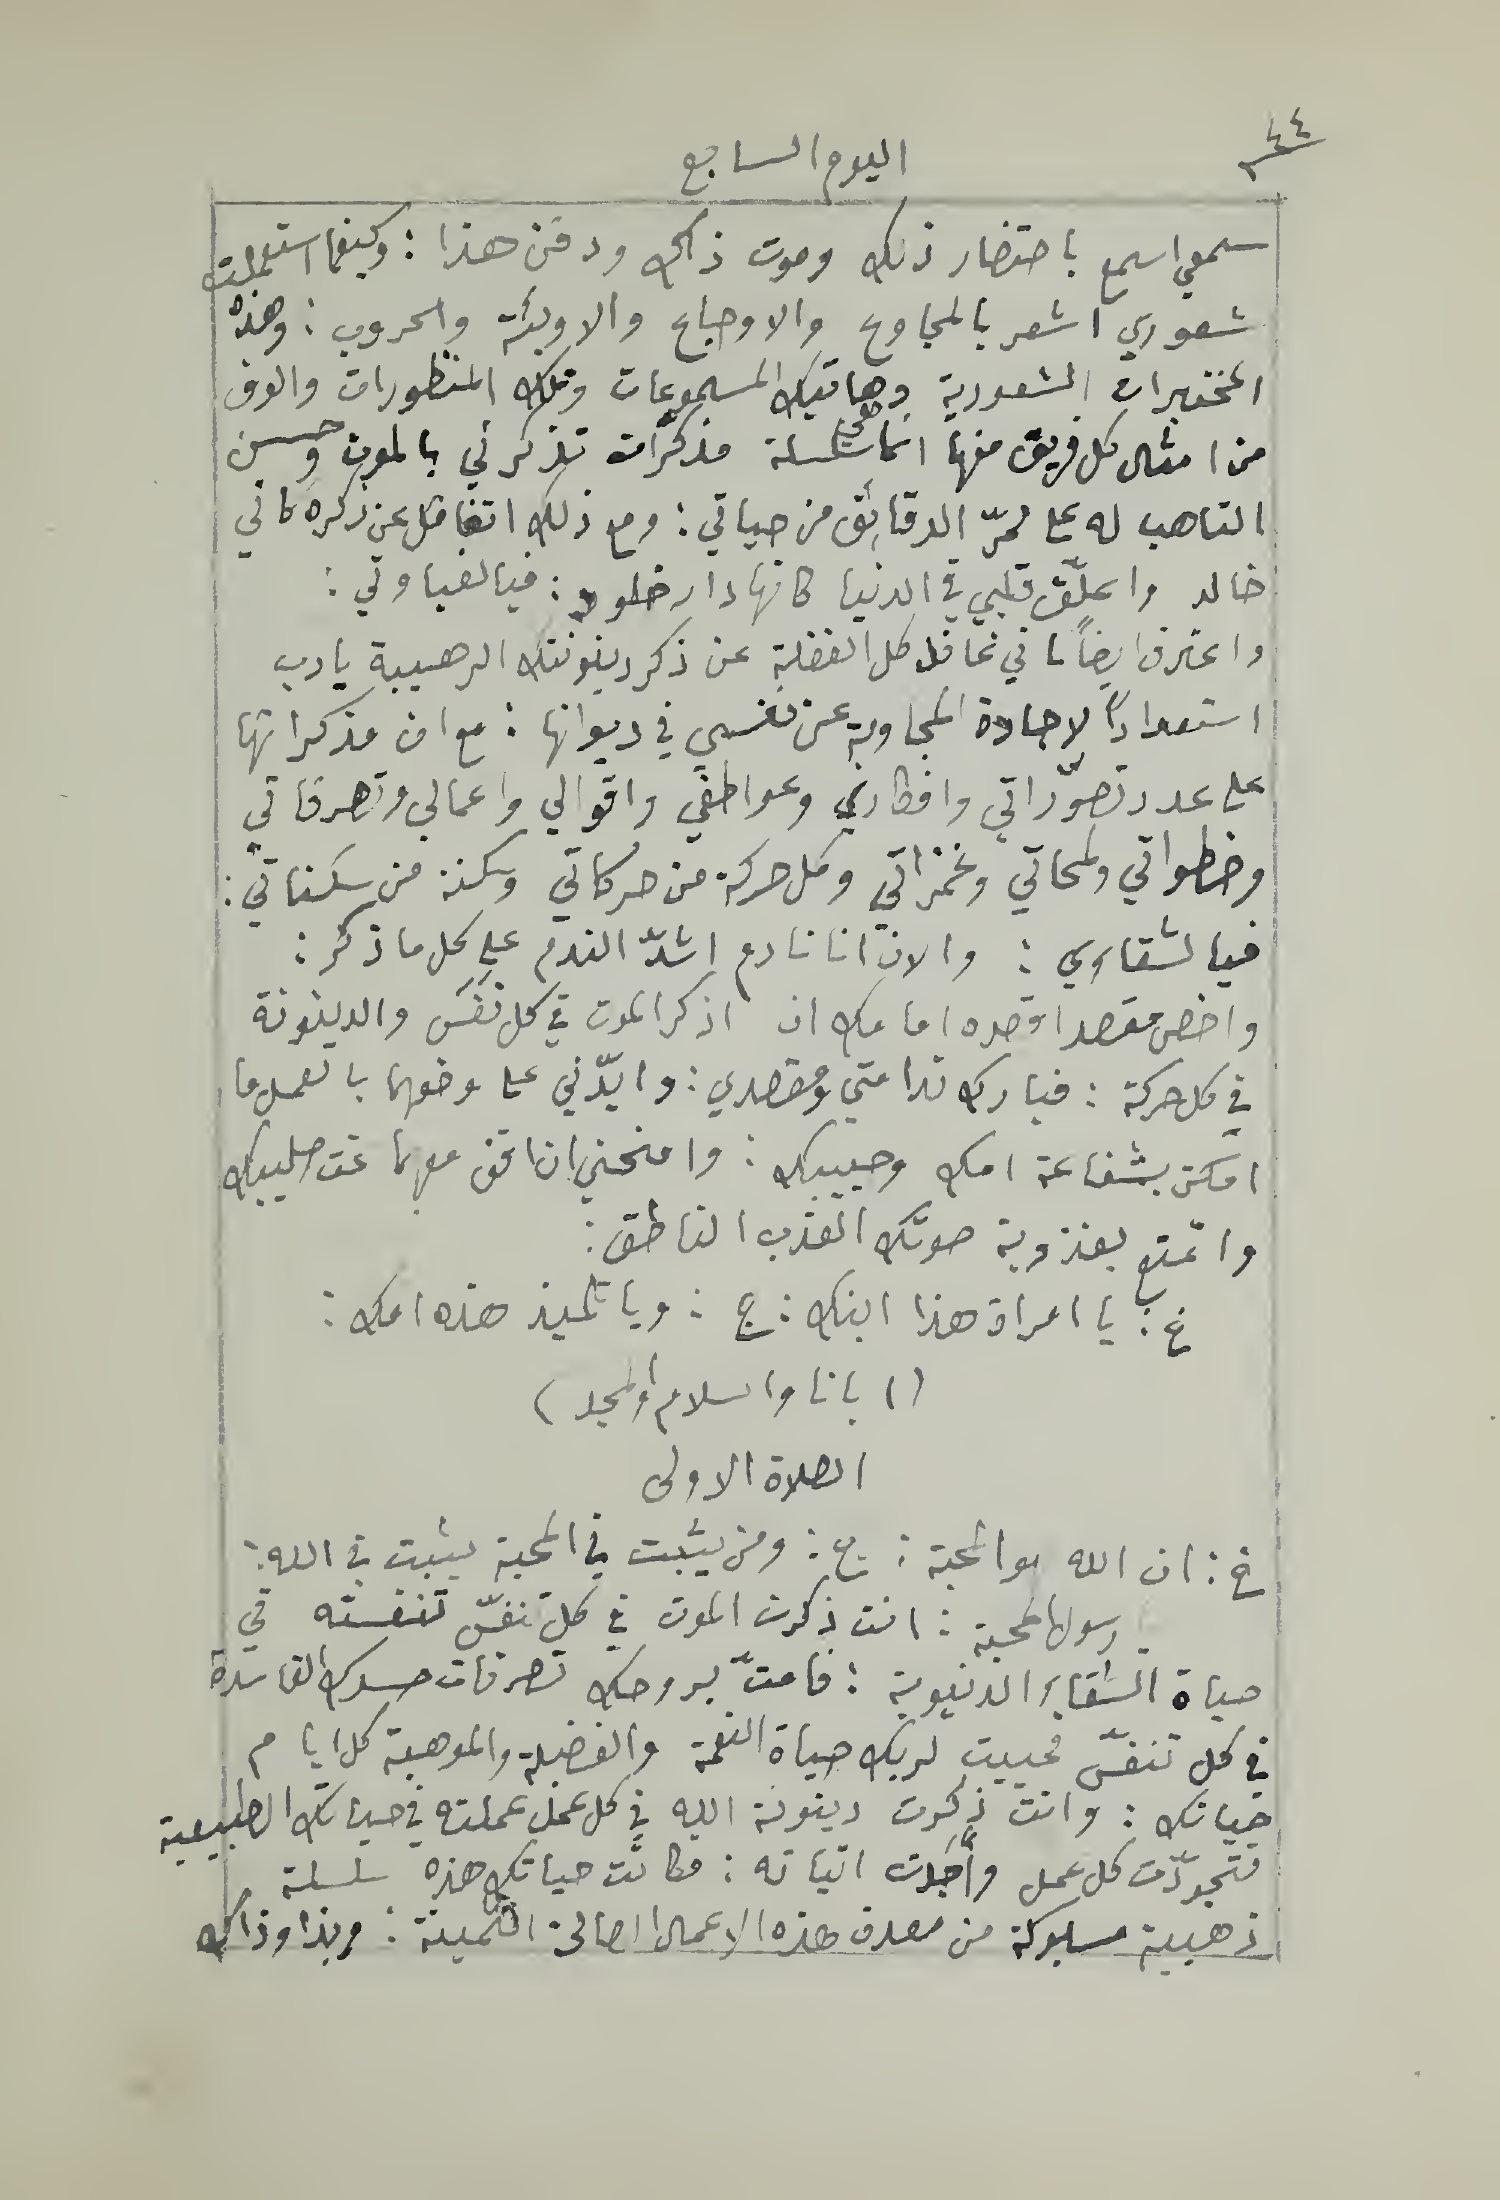 ٤٤
اليوم السابع
سمعي اسمع باحتضار ذلك وموت ذاك ودفن هذا : وكيفما استعملت
شعوري اشعر بالمجاوع والاوجاع والاوبئة والحروب : وهذه
المختبرات الشعورية وهاتيك المسموعات وتلك المنظورات والوف
من امثال كل فريق منها انما هي سلسلة مذكرات تذكرني بالموت وحسن
التاهب له على ممرّ الدقائق من حياتي : ومع ذلك اتغافل عن ذكره كاني
خالد واعلّق قلبي في الدنيا كانها دار خلود : فيا لغباوتي :
واعترف ايضاً باني غافل كل الغفلة عن ذكر دينونتك الرهيبة يا رب
استعداداً لاجادة المجاوبة عن نفسي في ديوانها : مع ان مذكراتها
على عدد تصوّراتي وافكاري وعواطفي واقوالي واعمالي وتصرفاتي
وخطواتي ولمحاتي وغمزاتي وكل حركة من حركاتي وسكنة من سكناتي :
فيا لشقاوي : والان انا نادم اشدّ الندم على كل ما ذكر :
واخص مقصد اقصده امامك ان اذكر الموت في كل نفَس والدينونة
في كل حركة : فبارك ندامتي ومقصدي : وايّدني على وضعهما بالعمل ما
امكن بشفاعة امك وحبيبك : وامنحني ان اقف معهما تحت صليبك
واتمتع بعذوبة صوتك العذب الناطق :
خ : يا امراة هذا ابنك : ج : ويا تلميذ هذه امك :
(ابانا والسلام والمجد)
الصلاة الاولى
خ : ان الله هو المحبة : ج : ومن يثبت في المحبة يثبت في الله :
رسول المحبة : انت ذكرت الموت في كل تنفّس تنفسته في
حياة الشقاء الدنيوية : فامتّ بروحك تصرفات جسدك الفاسدة
في كل تنفّس فحييت لربك حياة النعمة والفضيلة والموهبة كل ايام
حياتك : وانت ذكرت دينونة الله في كل عمل عملته في حياتك الطبيعية
فتجودّت كل عمل وأجدت اتيانه : فكانت حياتك هذه سلسلة
ذهبية مسبوكة من معدن هذه الاعمال الصالحة الثمينة : وبذا وذاك